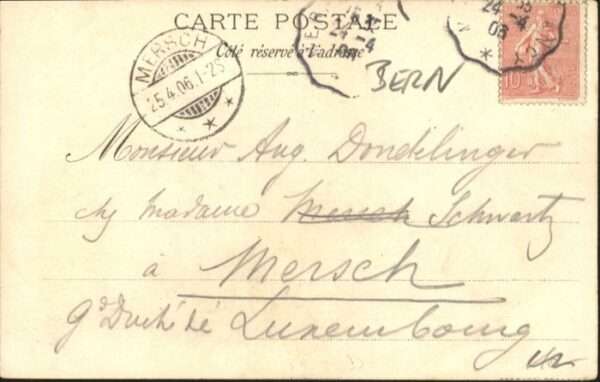 CARTE POSTALE
Côté réservé à l'adresse
MERSCH
25.4.06.1-2S
24 -4
06
24 -4
06
10
BERN
Monsieur Aug. Dondelinger
chz madame Mersch Schwartz
à Mersch
Gd Duché de Luxembourg